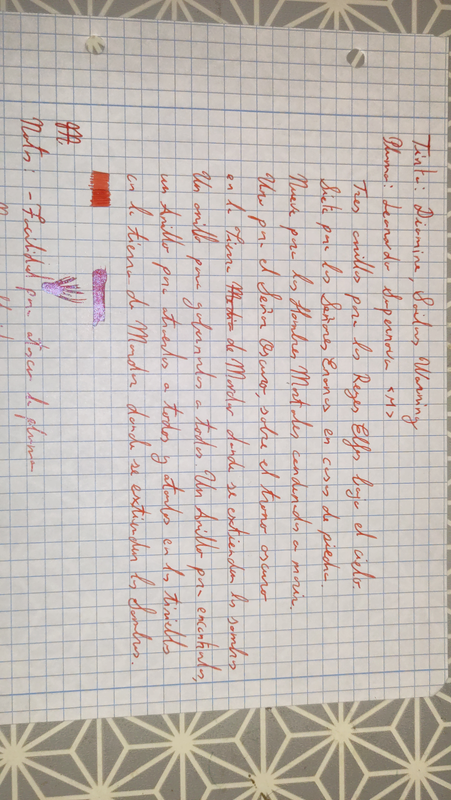 Tinta: Diamine, Sailors Warning
Pluma: Leonardo Supernova <M>
Tres anillos para los Reyes Elfos bajo el cielo.
Siete para los Señores Enanos en casas de piedra.
Nueve para los Hombres Mortales condenados a morir.
Uno para el Señor Oscuro, sobre el trono oscuro
en la Tierra de Mordor donde se extienden las sombras
Un anillo para gobernarlos a todos. Un Anillo para encontrarlos,
un Anillo para atraerlos a todos y atarlos en las tinieblas
en la tierra de Mordor donde se extienden las Sombras.
Notas: - Facilidad para la pluma